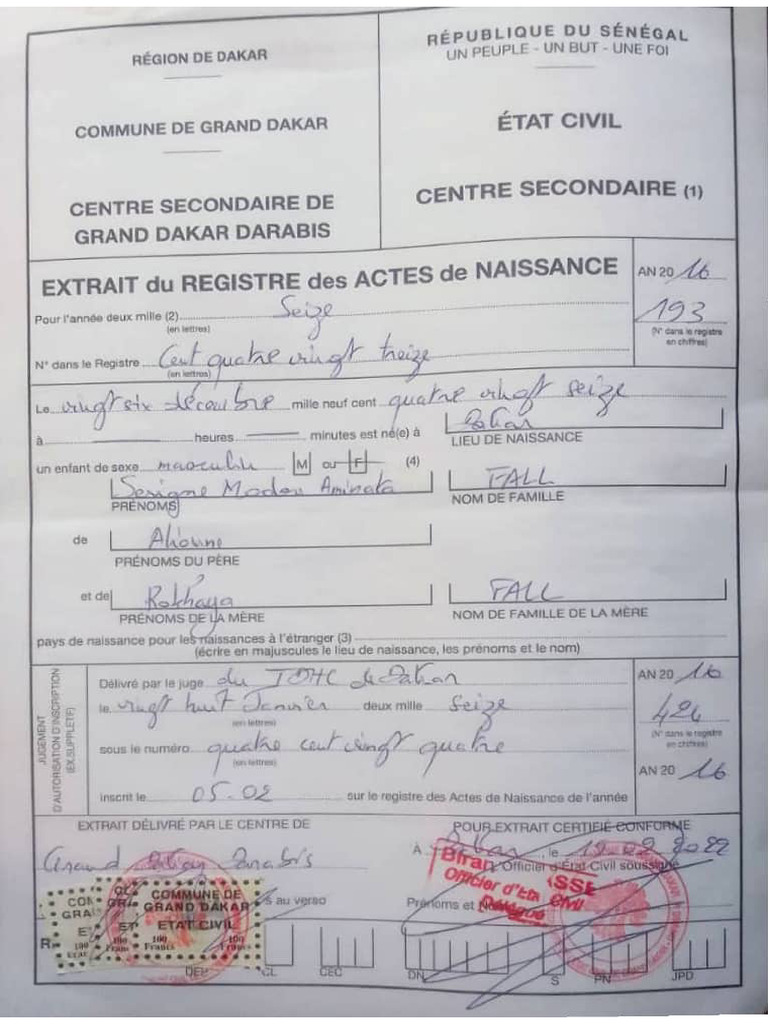 RÉGION DE DAKAR
COMMUNE DE GRAND DAKAR
CENTRE SECONDAIRE DE
GRAND DAKAR DARABIS
RÉPUBLIQUE DU SÉNÉGAL
UN PEUPLE - UN BUT - UNE FOI
ÉTAT CIVIL
CENTRE SECONDAIRE (1)
EXTRAIT du REGISTRE des ACTES de NAISSANCE
AN 20 16
Pour l'année deux mille (2) Seize
(en lettres)
193
(N° dans le registre
en chiffres)
N° dans le Registre Cent quatre vingt treize
(en lettres)
Le vingt six décembre mille neuf cent quatre vingt seize
à heures minutes est né(e) à Dakar
LIEU DE NAISSANCE
un enfant de sexe masculin M ou F (4)
Serigne Modou Aminata FALL
PRÉNOMS NOM DE FAMILLE
de Alioune
PRÉNOMS DU PÈRE
et de Rokhaya FALL
PRÉNOMS DE LA MÈRE NOM DE FAMILLE DE LA MÈRE
pays de naissance pour les naissances à l'étranger (3)
(écrire en majuscules le lieu de naissance, les prénoms et le nom)
JUGEMENT
D'AUTORISATION D'INSCRIPTION
(EX.SUPPLETIF)
Délivré par le juge du de Dakar
AN 20 16
le vingt huit Janvier deux mille seize
(en lettres)
424
(N° dans le registre
en chiffres)
sous le numéro quatre cent vingt quatre
(en lettres)
AN 20 16
inscrit le 05.02 sur le registre des Actes de Naissance de l'année
EXTRAIT DÉLIVRÉ PAR LE CENTRE DE
Grand Dakar Darabis
POUR EXTRAIT CERTIFIÉ CONFORME
À Dakar, le 2022
Officier d'État-Civil soussigné
Officier d'Etat Civil
Délégué
Prénoms et
au verso
COMMUNE DE
GRAND DAKAR
ETAT CIVIL
100
Francs
100
Frans
DEP CL CEC DN S PN JPD